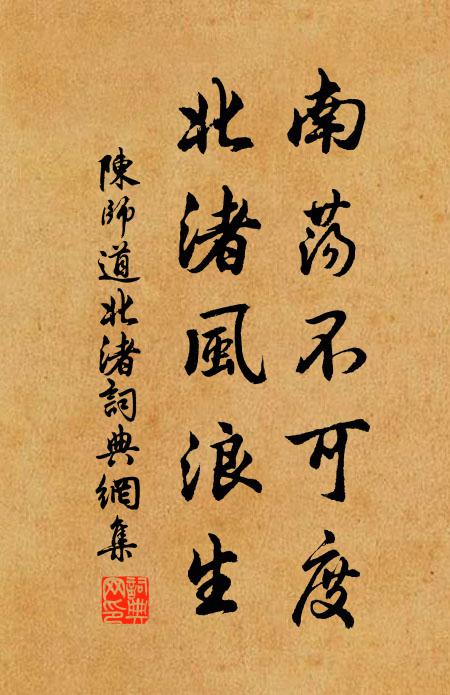 南荡不可度
北渚風浪生
陳師道北渚詞典網集
詞典网印